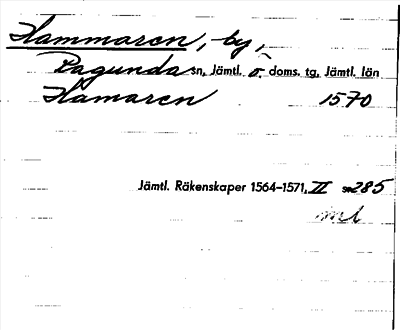 Hammaren, by,
Ragunda sn, Jämtl. ö. doms. tg, Jämtl. län
Hamaren 1570
Jämtl. Räkenskaper 1564–1571, II s. 285